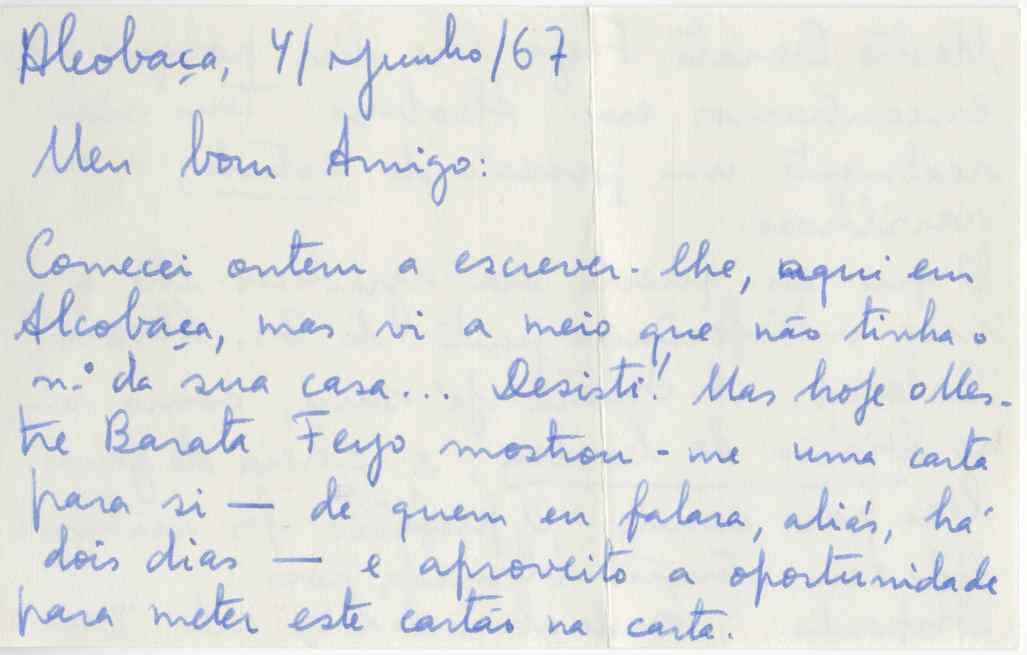 Alcobaça, 4/Junho/67
Meu bom Amigo:
Comecei ontem a escrever-lhe, aqui em
Alcobaça, mas vi a meio que não tinha o
n.º da sua casa... Desisti! Mas hoje o Mes-
tre Barata Feyo mostrou-me uma carta
para si — de quem eu falara, aliás, há
dois dias — e aproveito a oportunidade
para meter este cartão na carta.